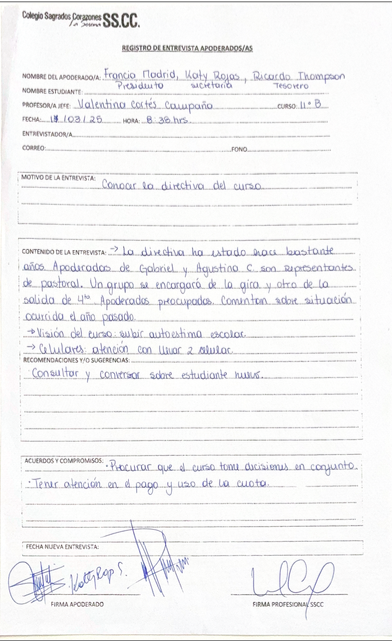 Colegio Sagrados Corazones
SS.CC.
REGISTRO DE ENTREVISTA APODERADOS/AS
NOMBRE DEL APODERADO/A: Francia Madrid, Katy Rojas, Ricardo Thompson
Presidenta secretaria Tesorero
NOMBRE ESTUDIANTE:
PROFESOR/A JEFE: Valentina Cortés Campaña CURSO: II° B
FECHA: 11/03/25 HORA: 8:38 hrs
ENTREVISTADOR/A
CORREO: FONO
MOTIVO DE LA ENTREVISTA: Conocer la directiva del curso
CONTENIDO DE LA ENTREVISTA: → La directiva ha estado hace bastante
años. Apoderadas de Gabriel y Agustina C son representantes
de pastoral. Un grupo se encargará de la gira y otro de la
salida de 4to. Apoderados preocupados. Comentan sobre situación
ocurrida el año pasado.
→ Visión del curso: subir autoestima escolar
→ Celulares: atención con usar 2 celular
RECOMENDACIONES Y/O SUGERENCIAS:
Consultar y conversar sobre estudiante nuevo.
ACUERDOS Y COMPROMISOS:
• Procurar que el curso tome decisiones en conjunto.
• Tener atención en el pago y uso de la cuota.
FECHA NUEVA ENTREVISTA:
Katy Rojas S.
FIRMA APODERADO FIRMA PROFESIONAL SSCC